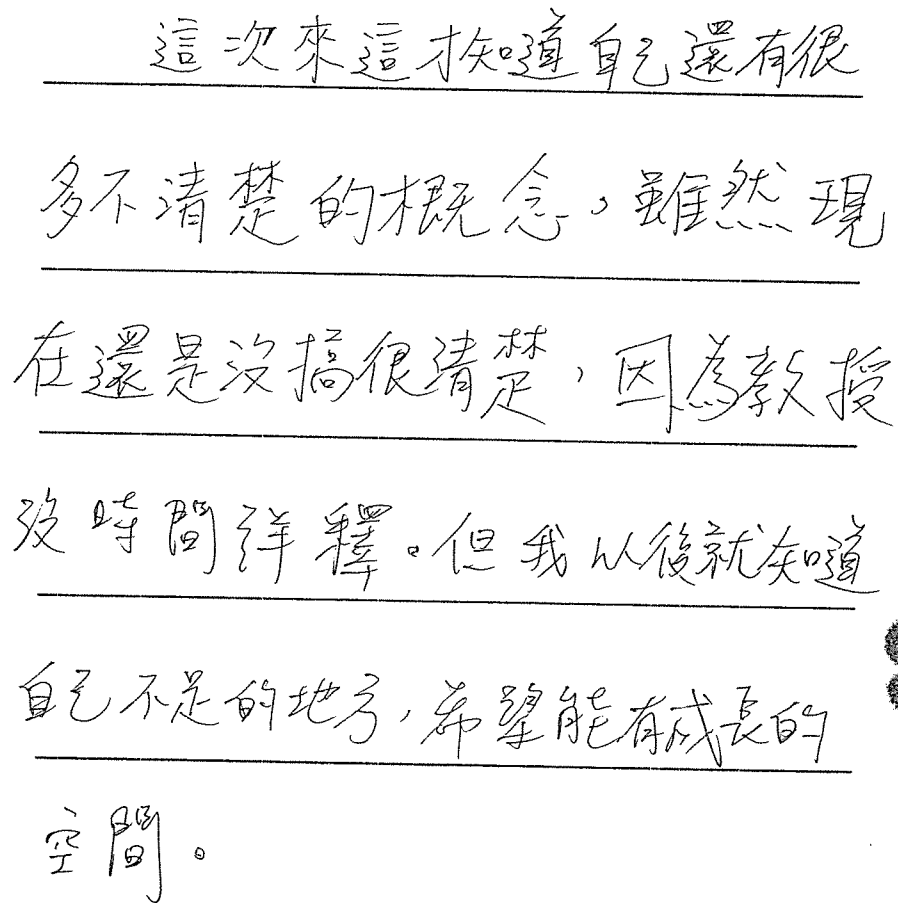 這次來這才知道自己還有很
多不清楚的概念，雖然現
在還是沒搞很清楚，因為教授
沒時間詳釋。但我以後就知道
自己不足的地方，希望能有成長的
空間。